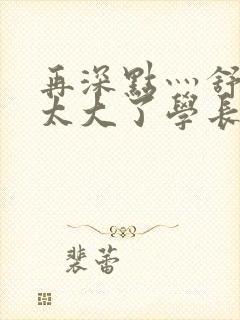 再深點灬舒
太大了學長
裴蕾